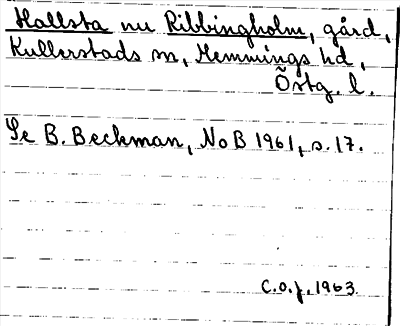 Hallsta nu Ribbingholm, gård,
Kullerstads sn, Memmings hd,
Östg. l.
Se B. Beckman, NoB 1961, s. 17.
C.O.f. 1963